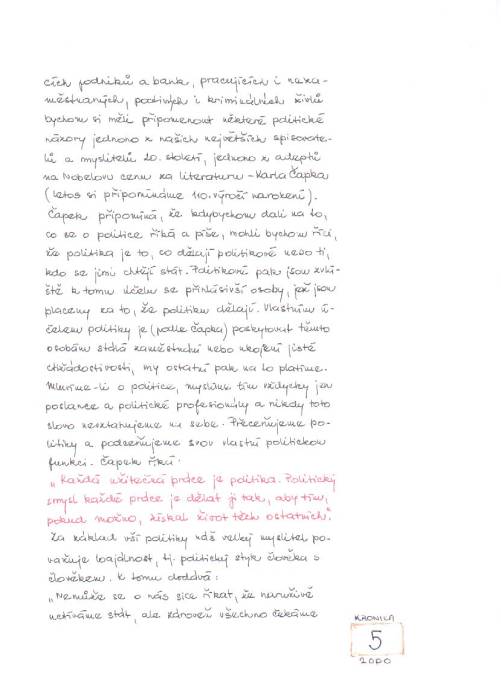 cích podniků a bank, pracujících i neza-
městnaných, poctivých i kriminálních živlů
bychom si měli připomenout některé politické
názory jednoho z našich největších spisovate-
lů a myslitelů 20. století, jednoho z adeptů
na Nobelovu cenu za literaturu - Karla Čapka
(letos si připomínáme 110. výročí narození).
Čapek připomíná, že kdybychom dali na to,
co se o politice říká a píše, mohli bychom říci,
že politika je to, co dělají politikové nebo ti,
kdo se jimi chtějí stát. Politikové pak jsou zvlá-
ště k tomu účelu se přihlásivší osoby, jež jsou
placeny za to, že politiku dělají. Vlastním ú-
čelem politiky je (podle Čapka) poskytovat těmto
osobám stálá zaměstnání nebo ukojení jisté
ctižádostivosti, my ostatní pak na to platíme.
Mluvíme-li o politice, myslíme tím vždycky jen
poslance a politické profesionály a nikdy toto
slovo nevztahujeme na sebe. Přeceňujeme po-
litiky a podceňujeme svou vlastní politickou
funkci. Čapek říká:
"Každá užitečná práce je politika. Politický
smysl každé práce je dělat ji tak, aby tím,
pokud možno, získal život těch ostatních."
Za základ vší politiky náš velký myslitel po-
važuje loajálnost, tj. politický styk člověka s
člověkem. K tomu dodává:
"Nemůže se o nás sice říkat, že náruživě
uctíváme stát, ale zároveň všechno čekáme
KRONIKA
5
2000